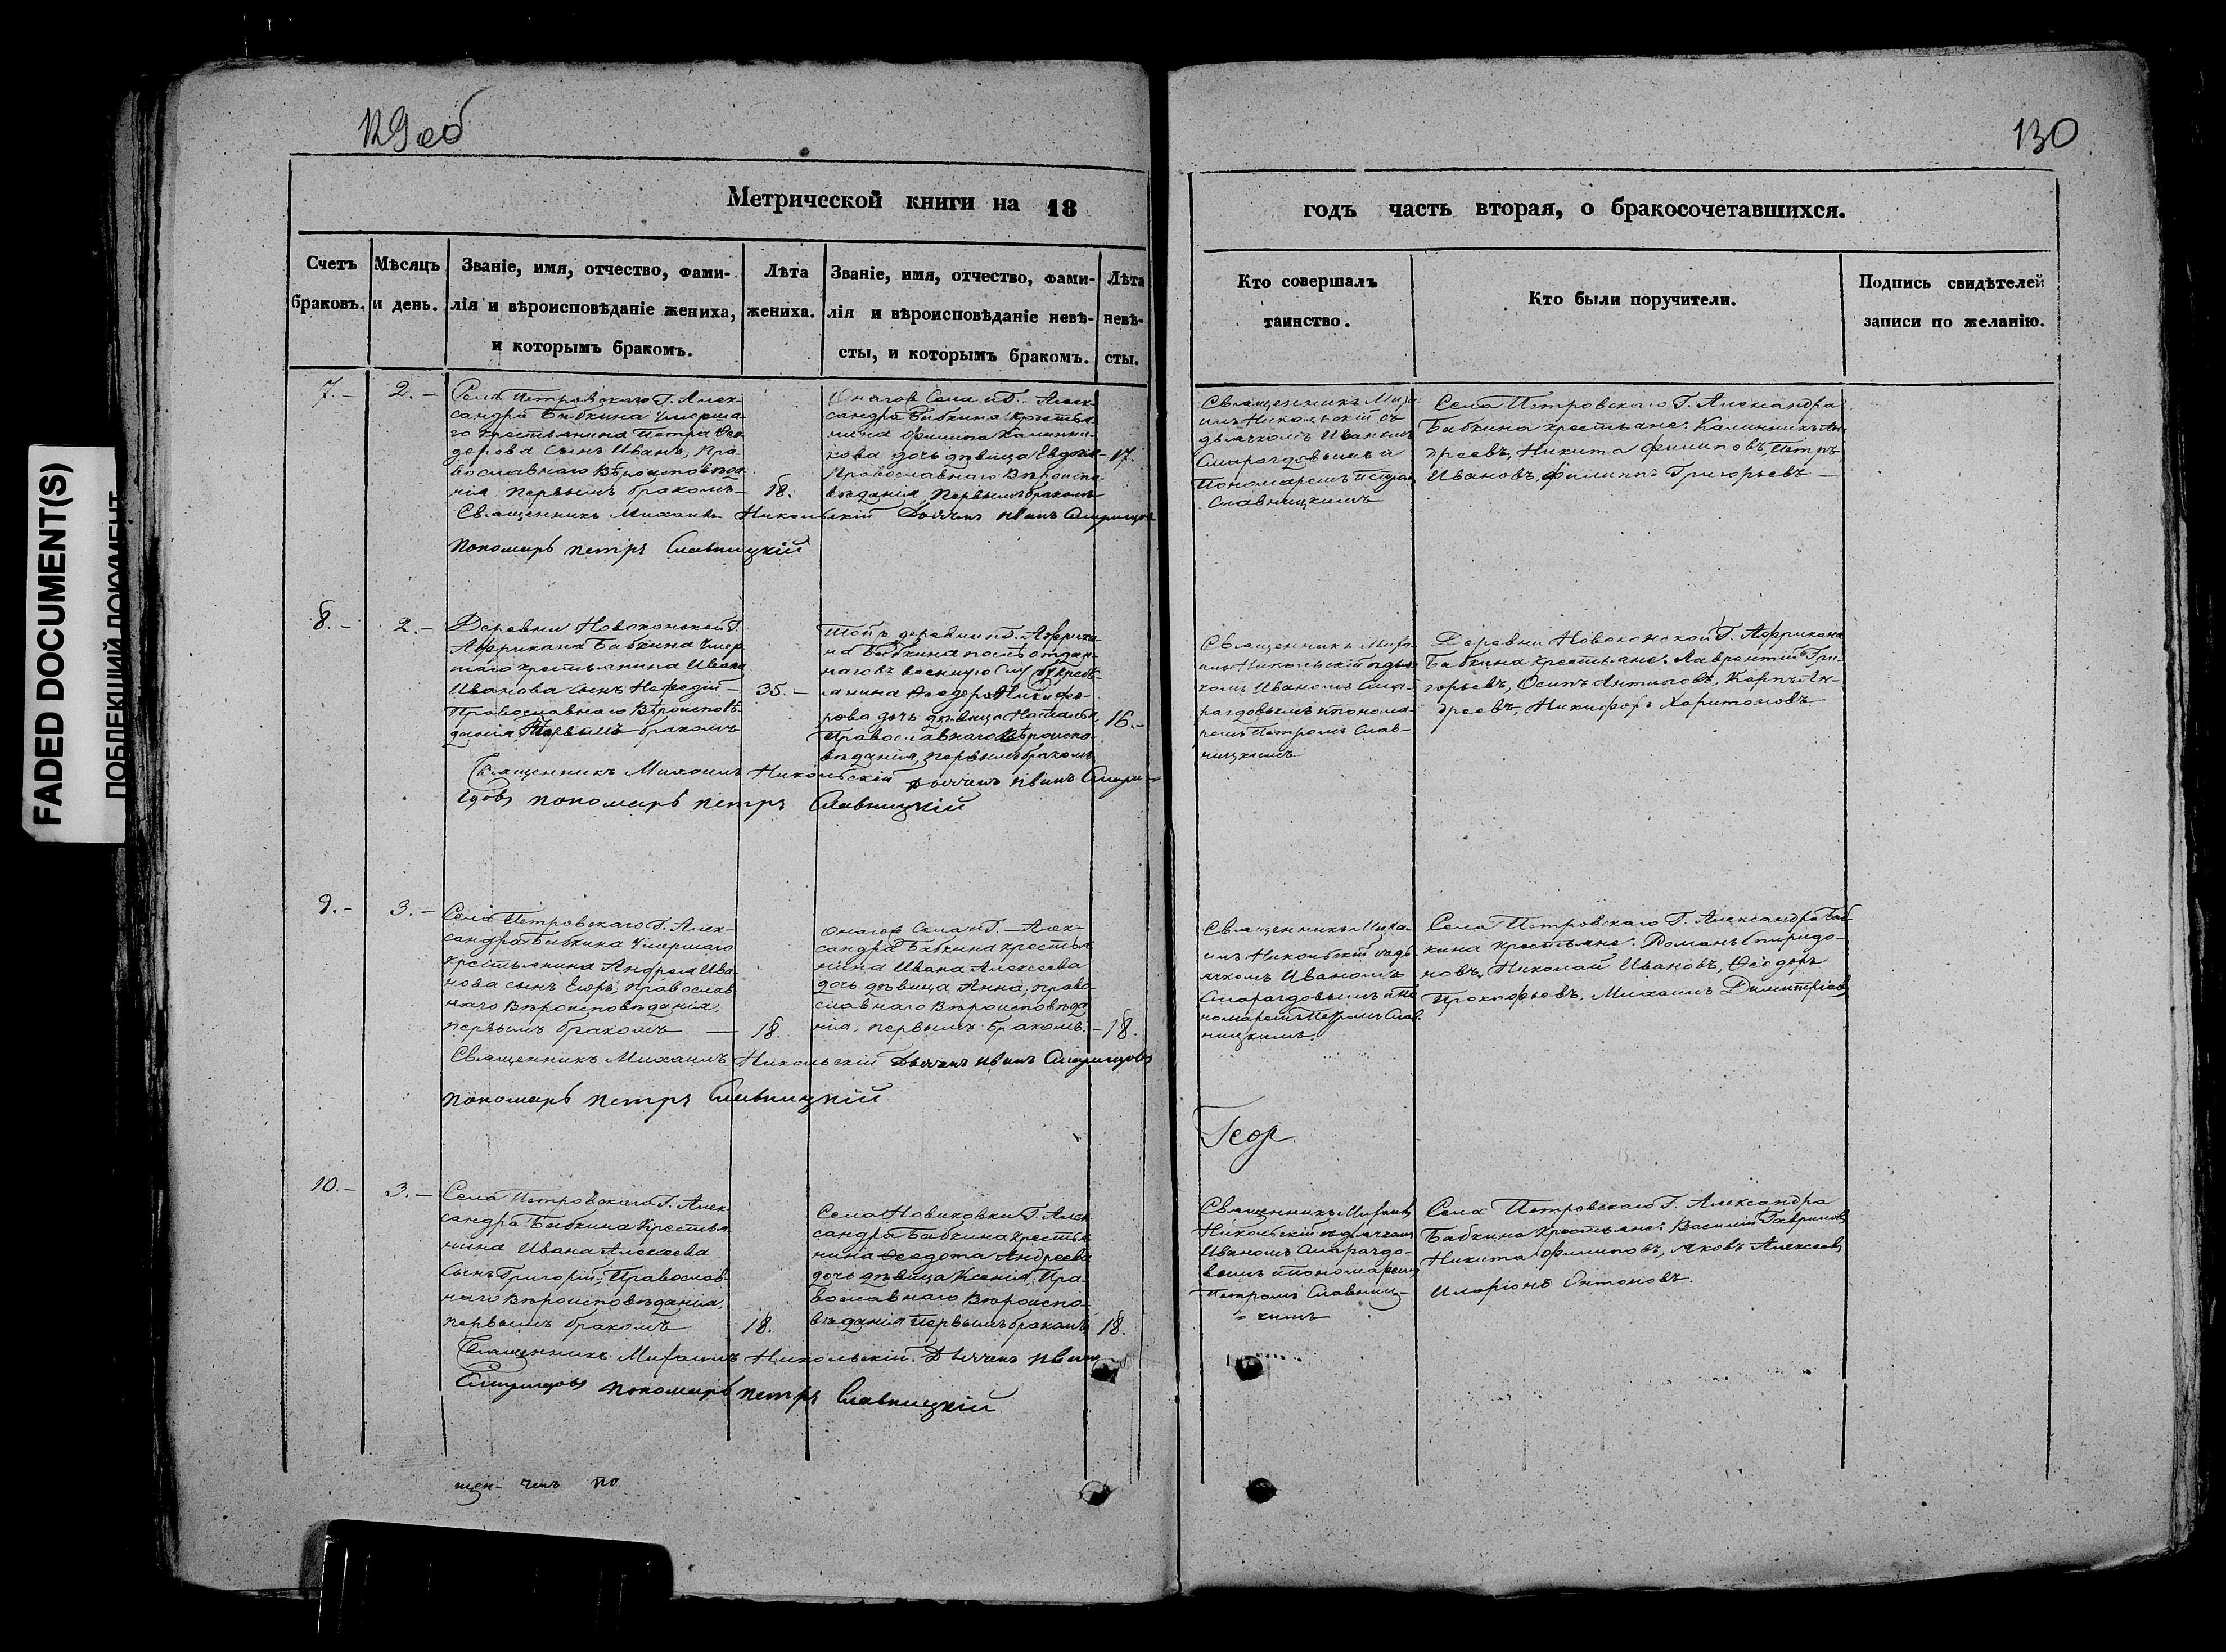 129 об
130
Метрической книги на 18
годъ часть вторая, о бракосочетавшихся.
Счетъ браковъ.
Мѣсяцъ и день.
Званіе, имя, отчество, фами-
лія и вѣроисповѣданіе жениха,
и которымъ бракомъ.
Лѣта
жениха.
Званіе, имя, отчество, фами-
лія и вѣроисповѣданіе невѣ-
сты, и которымъ бракомъ.
Лѣта
невѣ-
сты.
Кто совершалъ
таинство.
Кто были поручители.
Подпись свидѣтелей
записи по желанію.
7.-
2.-
Села Петровскаго Г. Алек-
сандра Бабкина умерша-
го крестьянина Петра Ѳео-
дорова сынъ Иванъ, Пра-
вославнаго Вѣроисповѣда-
нія первымъ бракомъ-
18.
Онагож Села и Г. Алек-
сандра Бабкина крестья-
нина Филипа Калинни-
кова дочь дѣвица Евдокія
Православнаго Вѣроиспо-
вѣданія, первымъ бракомъ
17.
Священникъ Миха-
илъ Никольскій съ
дьячкомъ Иваномъ
Смарагдовымъ и
Пономаремъ Петромъ
Славницкимъ
Села Петровскаго Г. Александра
Бабкина крестьяне: Калинникъ Ан-
дреевъ, Никита Филиповъ, Петръ
Ивановъ, Филиппъ Григорьевъ-
Священникъ Михаилъ Никольскій Дьячекъ Иванъ Смарагдовъ
пономарь петръ Славницкій
8.-
2.-
Деревни Новоконской Г.
Африкана Бабкина умер-
шаго крестьянина Ивана
Иванова сынъ Меѳодій-
Православнаго Вѣроисповѣ-
данія Первымъ бракомъ
35.-
Той ъ деревни и Г. Африка-
на Бабкина отдан-
наго въ военную крестья-
нина Ѳеодора Никифо-
рова дочь дѣвица Наталья
Православнаго Вѣроиспо-
вѣданія, первымъ бракомъ
16.-
Священникъ Миха-
илъ Никольскій съ дьяч-
комъ Иваномъ Сма-
рагдовымъ и понома-
ремъ Петромъ Слав-
ницкимъ
Деревни Новоконской Г. Африкана
Бабкина крестьяне: Лаврентій Гри-
горьевъ, Осипъ Антиповъ, Карпъ Ан-
дреевъ, Никифоръ Харитоновъ
Священникъ Михаилъ Никольскій дьячекъ Иванъ Смара-
гдовъ пономарь петръ Славницкій
9.-
3.-
Села Петровскаго Г. Алек-
сандра Бабкина умершаго
крестьянина Андрея Ива-
нова сынъ Егоръ, Православ-
наго Вѣроисповѣданія,
первымъ бракомъ
18.
Онагож Села и Г. Алек-
сандра Бабкина крестья-
нина Ивана Алексѣева
дочь дѣвица Анна, право-
славнаго Вѣроисповѣда-
нія, первымъ бракомъ
18.
Священникъ Миха-
илъ Никольскій съ дь-
ячкомъ Иваномъ
Смарагдовымъ и По-
номаремъ Петромъ Слав-
ницкимъ.
Села Петровскаго Г. Александра Баб-
кина крестьяне: Романъ Спиридо-
новъ, Николай Ивановъ, Ѳеодоръ
Прокофьевъ, Михаилъ Димитріевъ
Священникъ Михаилъ Никольскій Дьячекъ Иванъ Смарагдовъ
пономарь петръ Славницкій
Геор
10.-
3.-
Села Петровскаго Г. Алек-
сандра Бабкина Крестья-
нина Ивана Алексѣева
Сынъ Григорій; Православ-
наго Вѣроисповѣданія,
первымъ бракомъ
18.
Села Новиковки Г. Алек-
сандра Бабкина крестья-
нина Ѳеодота Андреева
дочь дѣвица Ксенія; Пра-
вославнаго Вѣроиспо-
вѣданія первымъ бракомъ
18.
Священникъ Михаилъ
Никольскій съ дьячкомъ
Иваномъ Смарагдо-
вымъ и пономаремъ
Петромъ Славниц-
кимъ
Села Петровскаго Г. Александра
Бабкина крестьяне: Василій Гавриловъ
Никита Филиповъ, Яковъ Алексѣевъ
Иларіонъ Антоновъ.
Священникъ Михаилъ Никольскій. Дьячекъ Иванъ
Смарагдовъ пономарь петръ Славницкій
щен- чекъ по
FADED DOCUMENT(S)
ПОБЛЕКШИЙ ДОКУМЕНТ